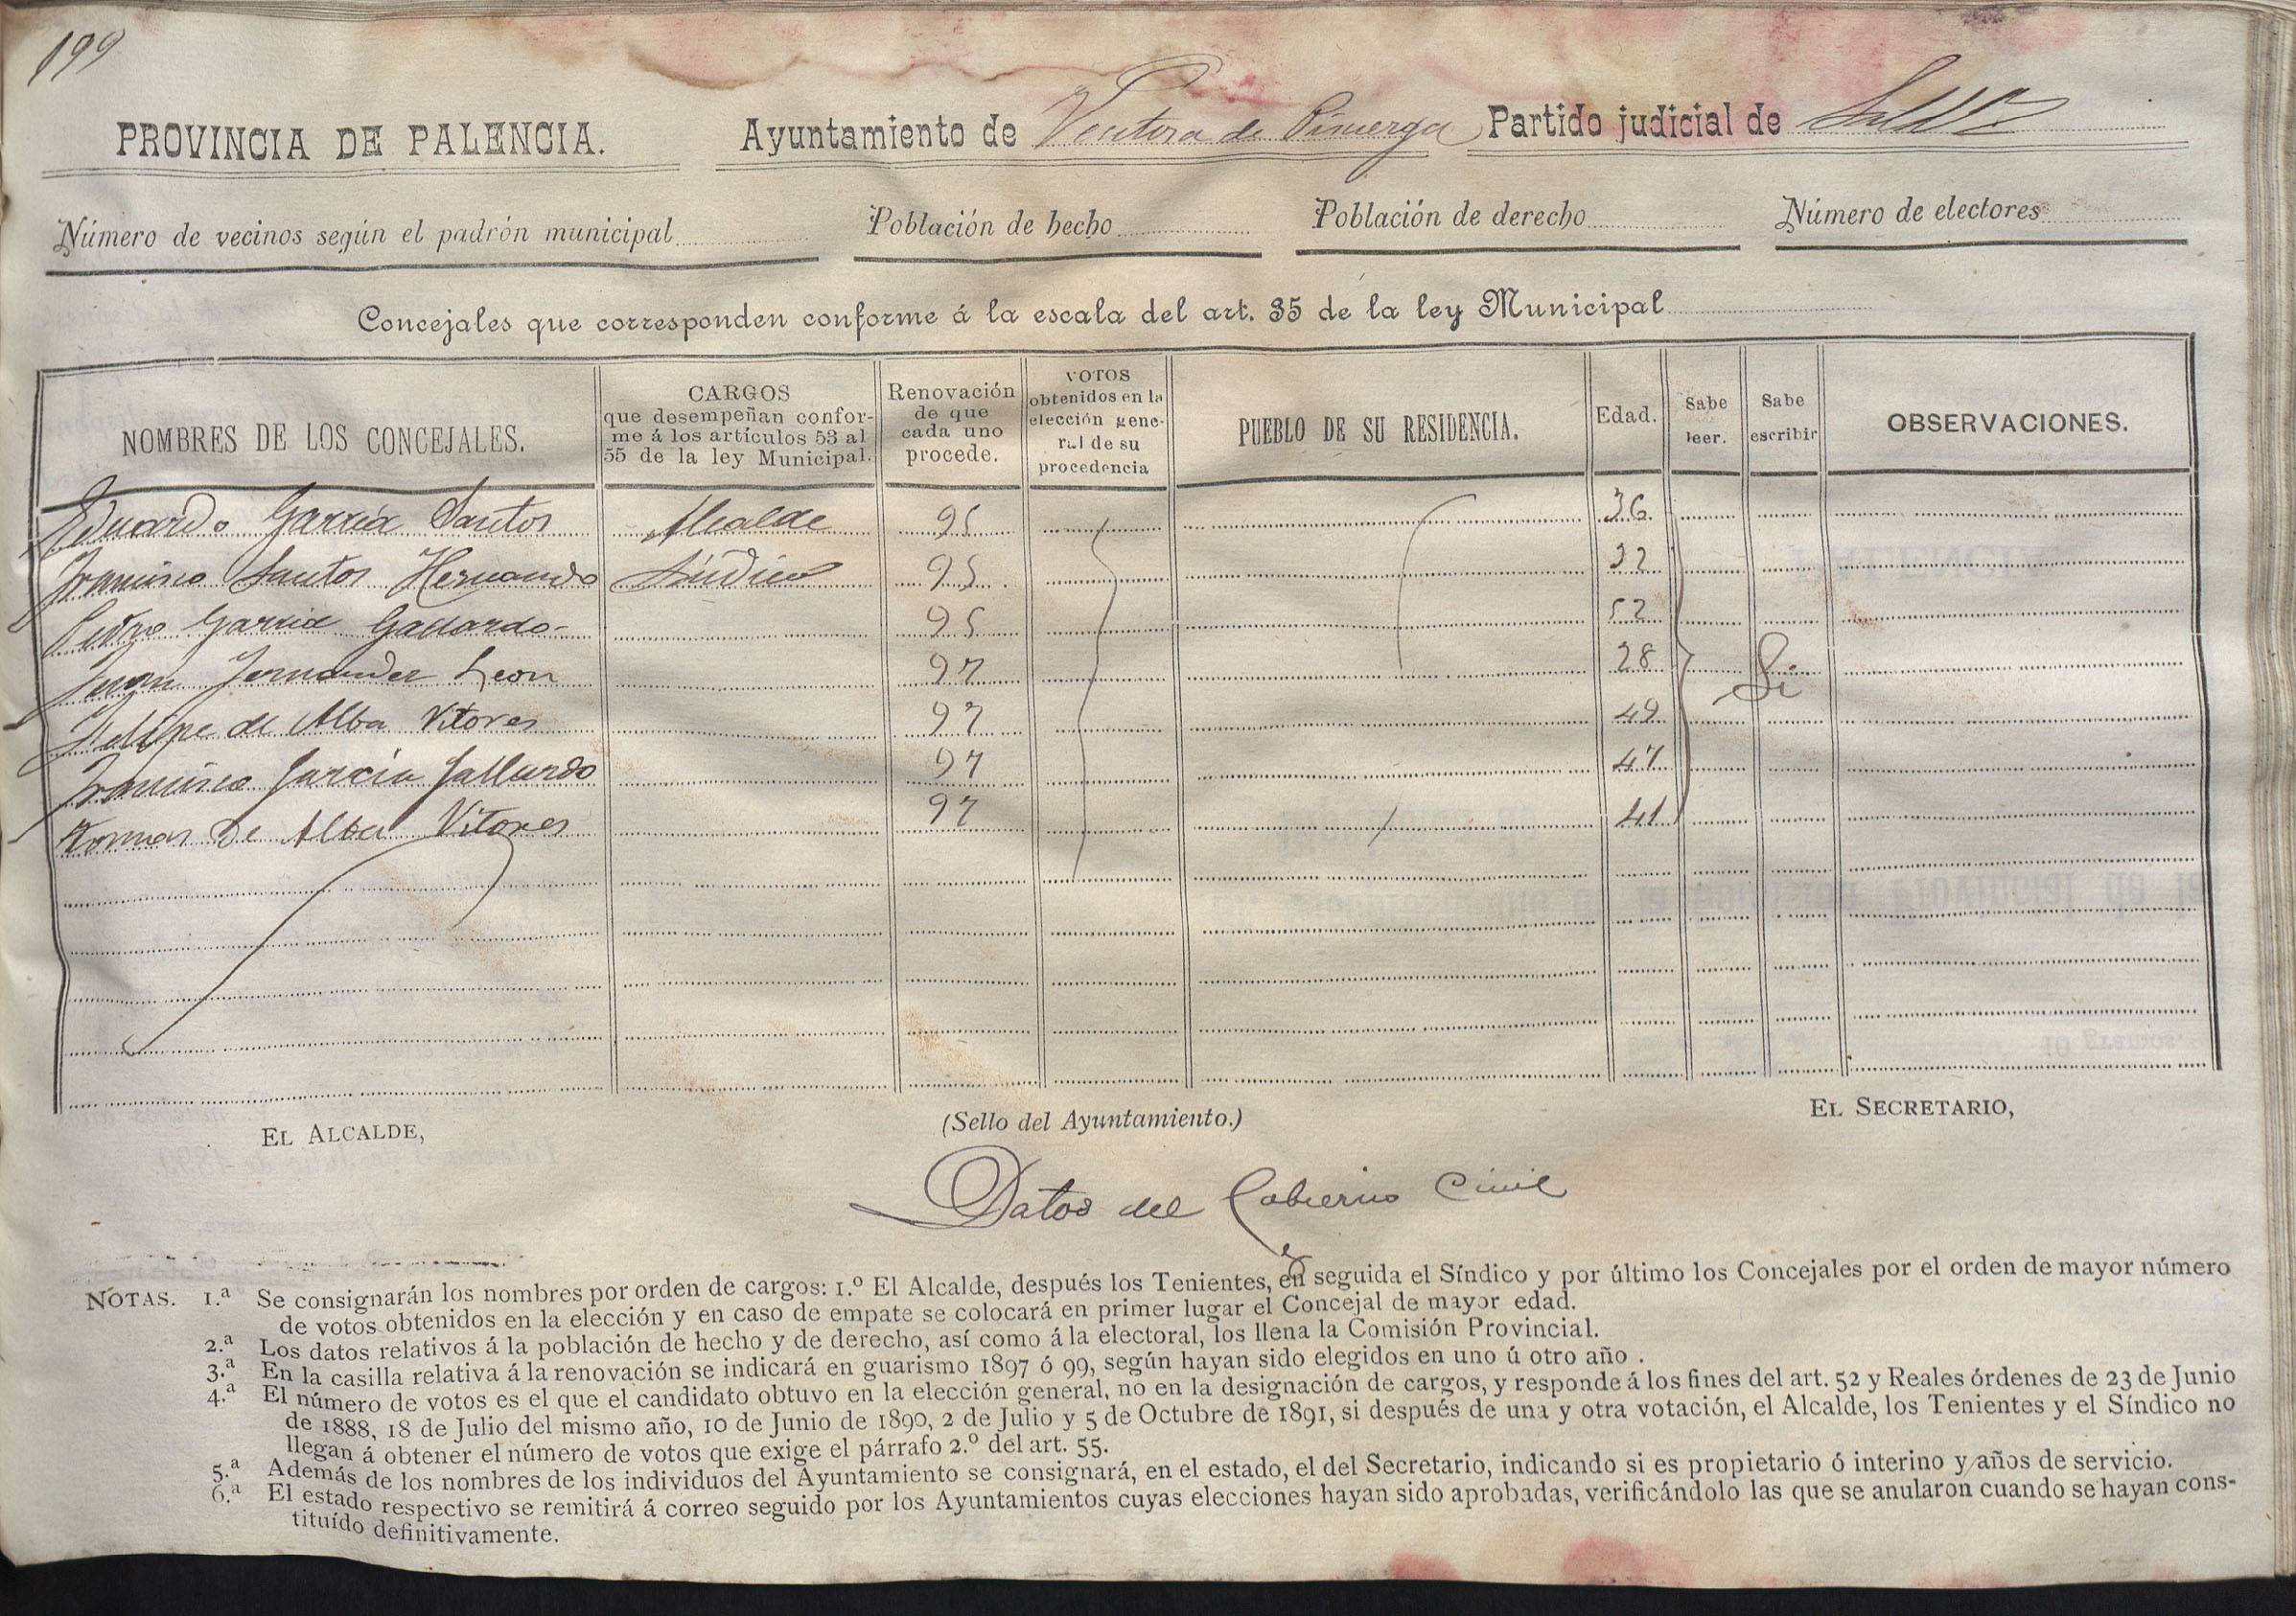 199
PROVINCIA DE PALENCIA. Ayuntamiento de Ventosa de Pisuerga Partido judicial de
Número de vecinos según el padrón municipal Población de hecho Población de derecho Número de electores
Concejales que corresponden conforme á la escala del art. 35 de la ley Municipal
NOMBRES DE LOS CONCEJALES. CARGOS que desempeñan conforme á los artículos 53 al 55 de la ley Municipal. Renovación de que cada uno procede. VOTOS obtenidos en la elección general de su procedencia PUEBLO DE SU RESIDENCIA. Edad. Sabe leer. Sabe escribir OBSERVACIONES.
Eduardo García Santos Alcalde 95 36
Francisco Santos Hernando Síndico 95 32
Pedro García Gallardo 95 52
Juan Fernandez Leon 97 28 Si
Felipe de Alba Vitores 97 49
Francisco García Gallardo 97 47
Tomas de Alba Vitores 97 41
EL ALCALDE, (Sello del Ayuntamiento.) EL SECRETARIO,
Datos del Gobierno Civil
NOTAS. 1.ª Se consignarán los nombres por orden de cargos: 1.º El Alcalde, después los Tenientes, en seguida el Síndico y por último los Concejales por el orden de mayor número
de votos obtenidos en la elección y en caso de empate se colocará en primer lugar el Concejal de mayor edad.
2.ª Los datos relativos á la población de hecho y de derecho, así como á la electoral, los llena la Comisión Provincial.
3.ª En la casilla relativa á la renovación se indicará en guarismo 1897 ó 99, según hayan sido elegidos en uno ú otro año.
4.ª El número de votos es el que el candidato obtuvo en la elección general, no en la designación de cargos, y responde á los fines del art. 52 y Reales órdenes de 23 de Junio
de 1888, 18 de Julio del mismo año, 10 de Junio de 1890, 2 de Julio y 5 de Octubre de 1891, si después de una y otra votación, el Alcalde, los Tenientes y el Síndico no
llegan á obtener el número de votos que exige el párrafo 2.º del art. 55.
5.ª Además de los nombres de los individuos del Ayuntamiento se consignará, en el estado, el del Secretario, indicando si es propietario ó interino y años de servicio.
6.ª El estado respectivo se remitirá á correo seguido por los Ayuntamientos cuyas elecciones hayan sido aprobadas, verificándolo las que se anularon cuando se hayan cons-
tituído definitivamente.